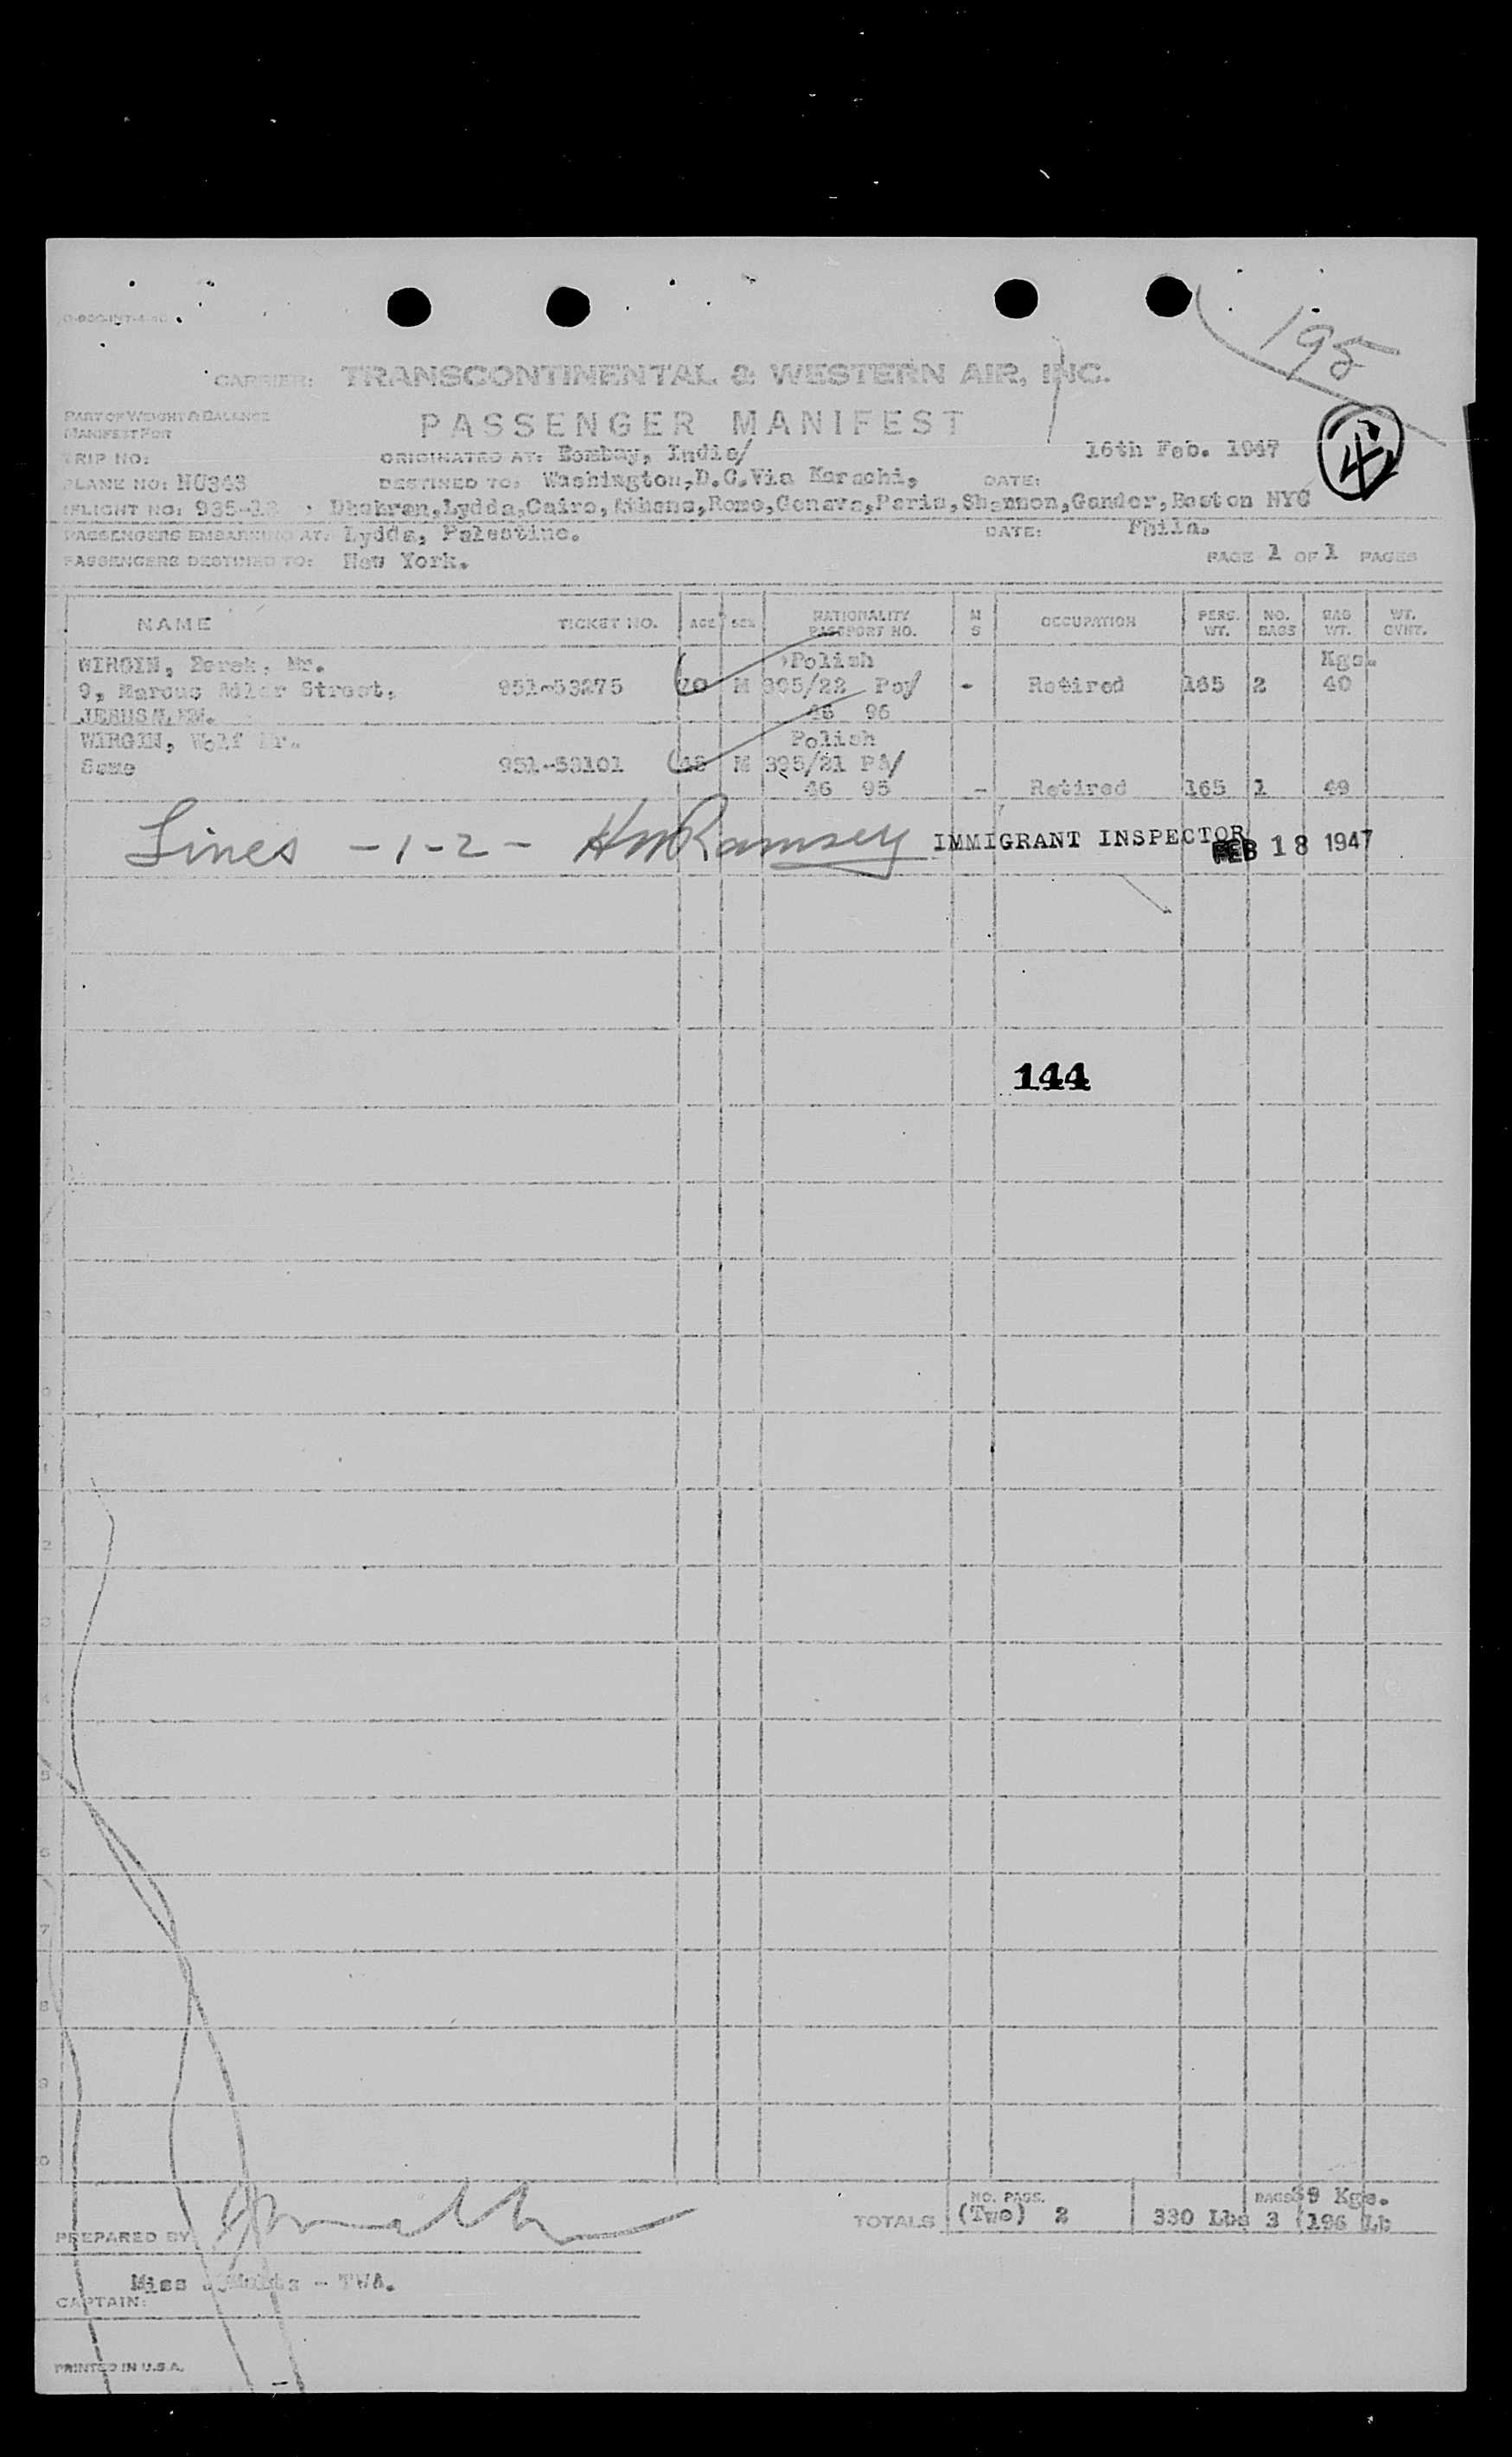 195
CARRIER: TRANSCONTINENTAL & WESTERN AIR, INC.
PART OF WEIGHT & BALANCE
MANIFEST FOR
PASSENGER MANIFEST
4
TRIP NO:
ORIGINATED AT: Bombay, India/
16th Feb. 1947
PLANE NO: NC343
DESTINED TO: Washington,D.C.Via Karachi,
DATE:
FLIGHT NO: 935-12
Dhahran,Lydda,Cairo,Athens,Rome,Geneva,Paris,Shannon,Gander,Boston NYC
PASSENGERS EMBARKING AT: Lydda, Palestine.
DATE:
Phila.
PASSENGERS DESTINED TO: New York.
PAGE 1 OF 1 PAGES
NAME TICKET NO. AGE SEX NATIONALITY PASSPORT NO. M S OCCUPATION PERS. WT. NO. BAGS BAG WT. WT. CVHT.
WIRGIN, Berek, Mr. Polish Kgs.
9, Marcus Adler Street, 951-53275 70 M 395/22 - Retired 165 2 40
JERUSALEM. 46 96
WIRGIN, Wolf Mr. Polish
Same 951-53101 M 395/21 PA/
46 95 - Retired 165 1 49
Lines -1-2- HMRamsey IMMIGRANT INSPECTOR FEB 18 1947
144
PREPARED BY
TOTALS NO. PASS. (Two) 2 330 Lbs BAGS 3 89 Kgs. (196 Lb
Miss - TWA.
CAPTAIN:
PRINTED IN U.S.A.